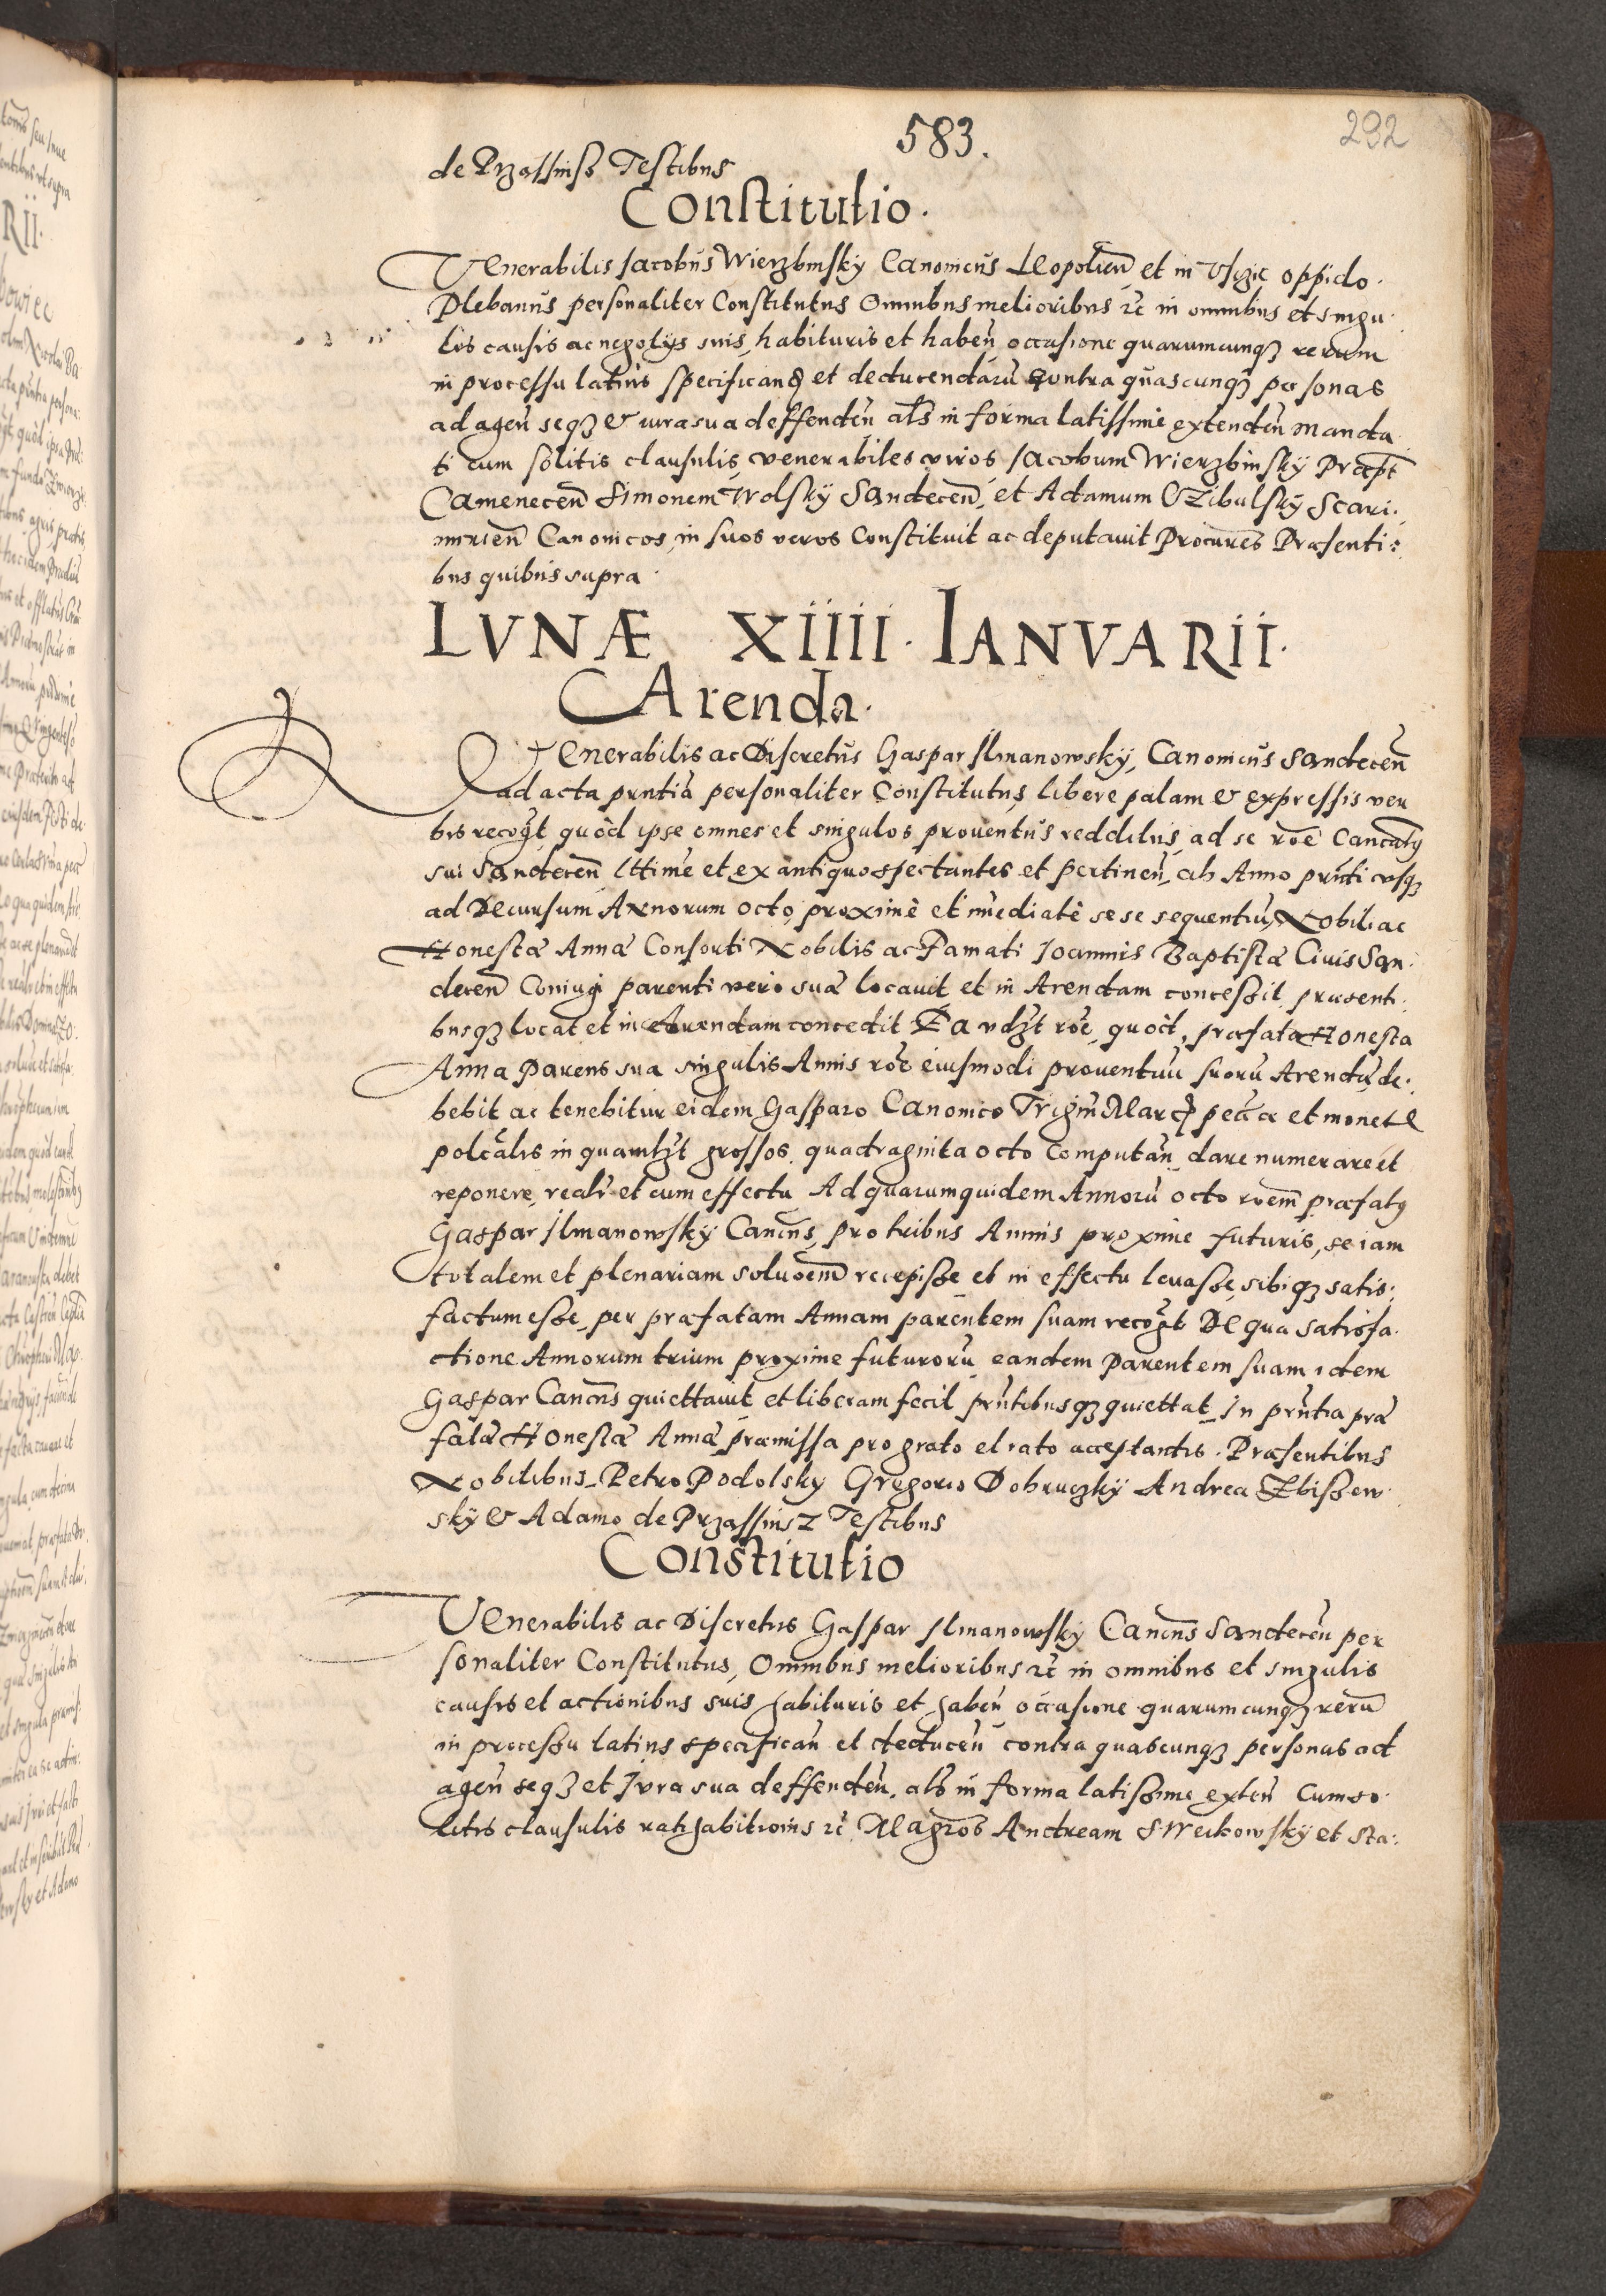 583.
292
de Przassinss Testibus
Constitutio.
Venerabilis Jacobus Wierzbinsky Canonicus Leopolien̄ et in Uszie oppido
Plebanus personaliter Constitutus Omnibus melioribus etc̄ in omnibus et singu
lis causis ac negotiis suis, habituris et haben̄ occasione quarumcunqꝫ rerum
in processu latius specificand et deducendarū Contra quascunqꝫ personas
ad agen̄ seqꝫ & iura sua deffenden̄ als in forma latissime extenden̄ manda
ti cum solitis clausulis, venerabiles viros Jacobum Wierzbinsky Præpt
Camenecen̄ Simonem Wolsky Sandecen̄, et Adamum Czibulsky Scari.
mirien̄ Canonicos, in suos veros Constituit ac deputauit Procures Præsenti:
bus quibus supra
LVNÆ XIIII. IANVARII.
Arenda.
Venerabilis ac Discretus Gaspar Ilmanowsky, Canonicus Sandecen̄
ad acta pn̄tia personaliter Constitutus, libere palam & expressis ver
bis recogt, quòd ipse omnes et singulos prouentus redditus, ad se roē Cancatꝯ
sui Sandecen̄ lttime et ex antiquo spectantes et pertinen̄, ab Anno pn̄ti usqꝫ
ad Decursum Annorum octo, proximè et īmediatè sese sequentiū, Nobili ac
Honestæ Annæ Consorti Nobilis ac Famati Joannis Baptistæ Ciuis San
decen̄ Coniugi parenti vero suæ locauit et in Arendam concessit, præsenti
busqꝫ locat et in Arendam concedit Ea vdzt roē, quòd, præfata Honesta
Anna Parens sua singulis Annis roē eiusmodi prouentuū suorū Arendæ de.
bebit ac tenebitur eidem Gasparo Canonico Trigin̄ Marcꝝ pecc̄æ et monetæ
polc̄alis in quamlzt grossos quadraginta octo Computan̄ dare numerare et
reponere, realr̄ et cum effectu Ad quarum quidem Annorū octo roēm præfatꝯ
Gaspar Ilmanowsky Canc̄us, pro tribus Annis proxime futuris, se iam
totalem et plenariam soluoēm recepisse et in effectu leuasse, sibiqꝫ satis:
factum esse, per præfatam Annam parentem suam recogt De qua satisfa
ctione Annorum trium proxime futurorū eandem Parentem suam idem
Gaspar Canc̄us quiettauit et liberam fecit pn̄tibusqꝫ quiettat, In pn̄tia præ
fatæ Honestæ Annæ præmissa pro grato et rato acceptantis. Præsentibus
Nobilibus, Petro Podolsky Gregorio Dobruczky Andrea Zbissew
sky & Adamo de Przassinsz Testibus
Constitutio
Venerabilis ac Discretus Gaspar Ilmanowsky Canc̄us Sandecen̄ per
sonaliter Constitutus, Omnibus melioribus etc̄ in omnibus et singulis
causis et actionibus suis habituris et haben̄ occasione quarumcunqꝫ rerū
in processu latius specifican̄ et deducen̄ contra quascunqꝫ personas ad
agen̄ seqꝫ et Jura sua deffenden̄, als in forma latissime exten̄ Cum so
litis clausulis ratihabitionis etc̄ Magros Andream Sweikowsky et Sta: